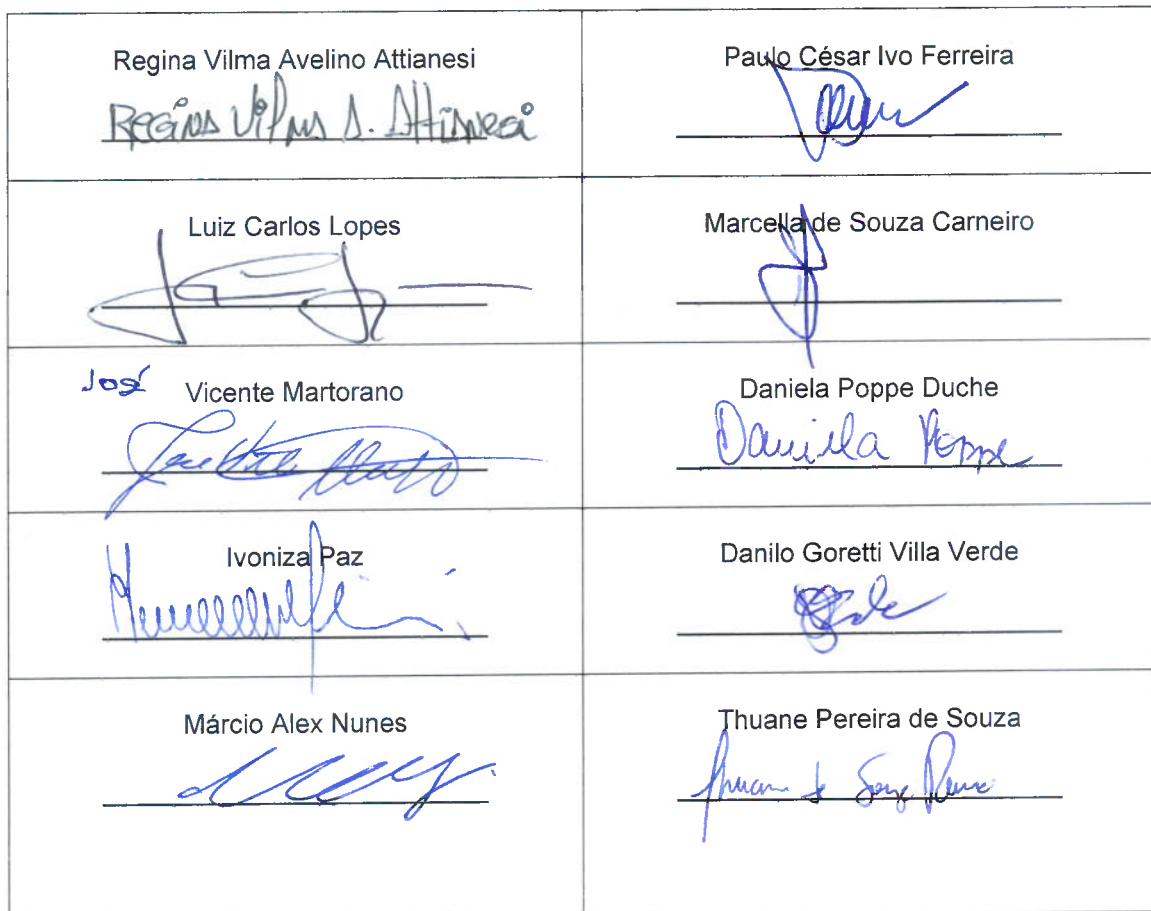 Regina Vilma Avelino Attianesi
Regina Vilma A. Attianesi
Paulo César Ivo Ferreira
Luiz Carlos Lopes
Marcella de Souza Carneiro
José Vicente Martorano
Daniela Poppe Duche
Daniela Poppe
Ivoniza Paz
Danilo Goretti Villa Verde
Márcio Alex Nunes
Thuane Pereira de Souza